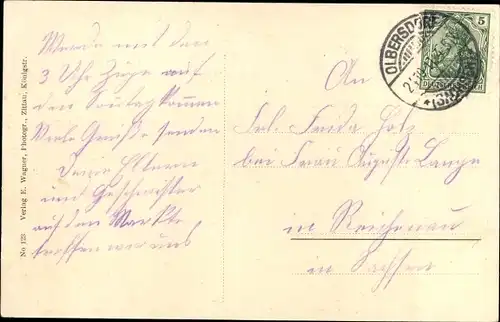 Werde mit den
3 Uhr Zuge auf
den Sonntag kommen
Viele Grüße senden
Deine Eltern
und Geschwister
auf den Markte
treffen wir uns
An
Frl. Frieda
bei Frau August Lange
in Reichenau
in Sachsen
OLBERSDORF
(SACHSEN)
5
No 123 Verlag E. Wagner, Photogr., Zittau, Königstr.